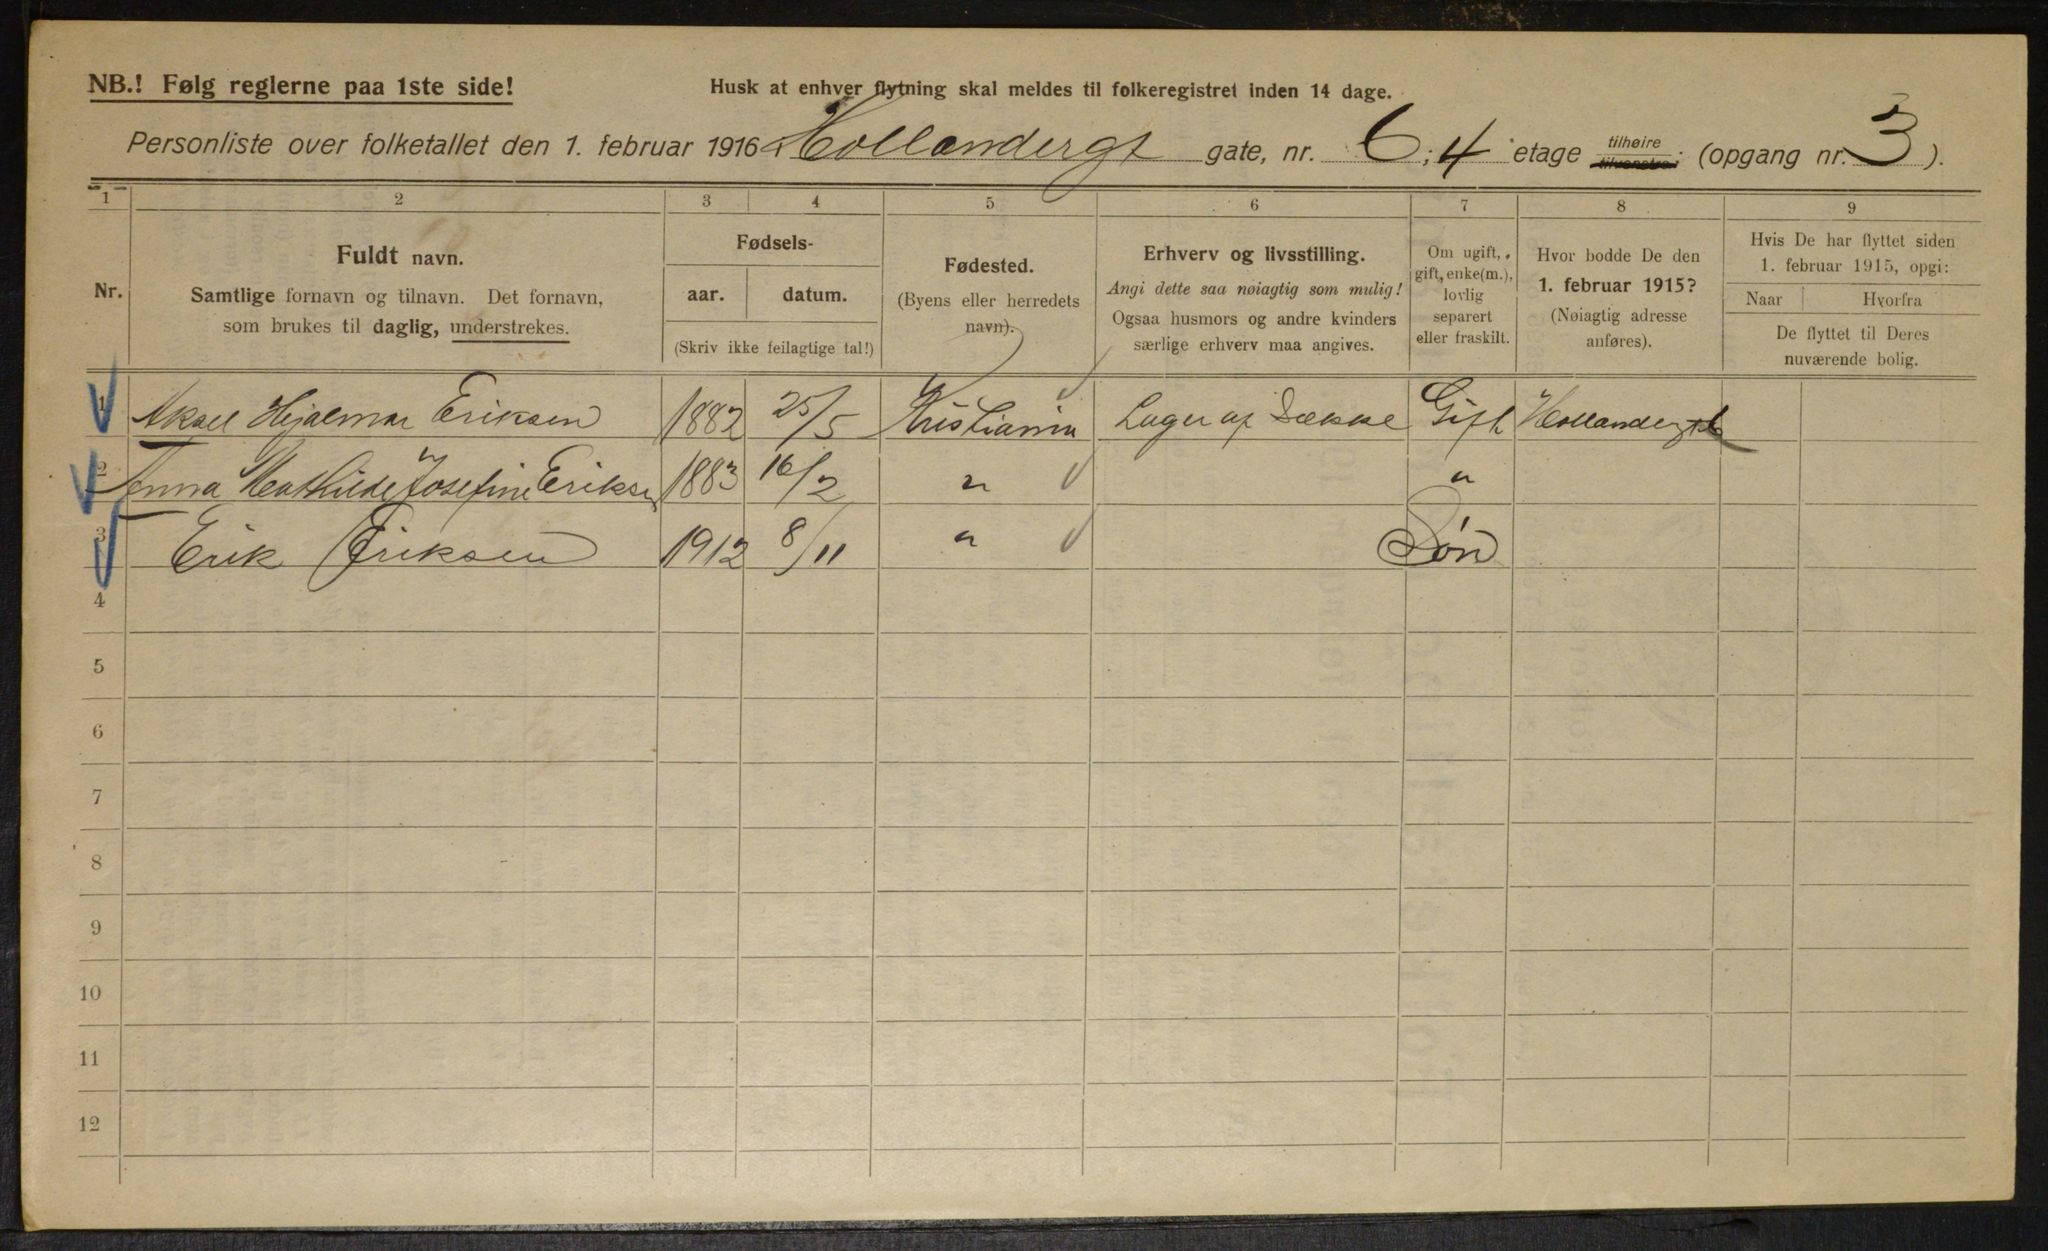 NB.! Følg reglerne paa 1ste side!
Husk at enhver flytning skal meldes til folkeregistret inden 14 dage.
Personliste over folketallet den 1. februar 1916 i Hollandergt gate, nr. 6; 4 etage tilhøire tilvenstre (opgang nr. 3).
1 2 3 4 5 6 7 8 9
Nr.
Fuldt navn.
Samtlige fornavn og tilnavn. Det fornavn,
som brukes til daglig, understrekes.
Fødsels-
aar. datum.
(Skriv ikke feilagtige tal!)
Fødested.
(Byens eller herredets
navn).
Erhverv og livsstilling.
Angi dette saa nøiagtig som mulig!
Ogsaa husmors og andre kvinders
særlige erhverv maa angives.
Om ugift,
gift, enke(m.),
lovlig
separert
eller fraskilt.
Hvor bodde De den
1. februar 1915?
(Nøiagtig adresse
anføres).
Hvis De har flyttet siden
1. februar 1915, opgi:
Naar Hvorfra
De flyttet til Deres
nuværende bolig.
1 Aksel Hjalmar Eriksen 1882 25/5 Kristiania Lager af Sække Gift Hollandergt 6
2 Anna Mathilde Josefine Eriksen 1883 16/2 " "
3 Erik Eriksen 1912 8/11 " Søn
4
5
6
7
8
9
10
11
12